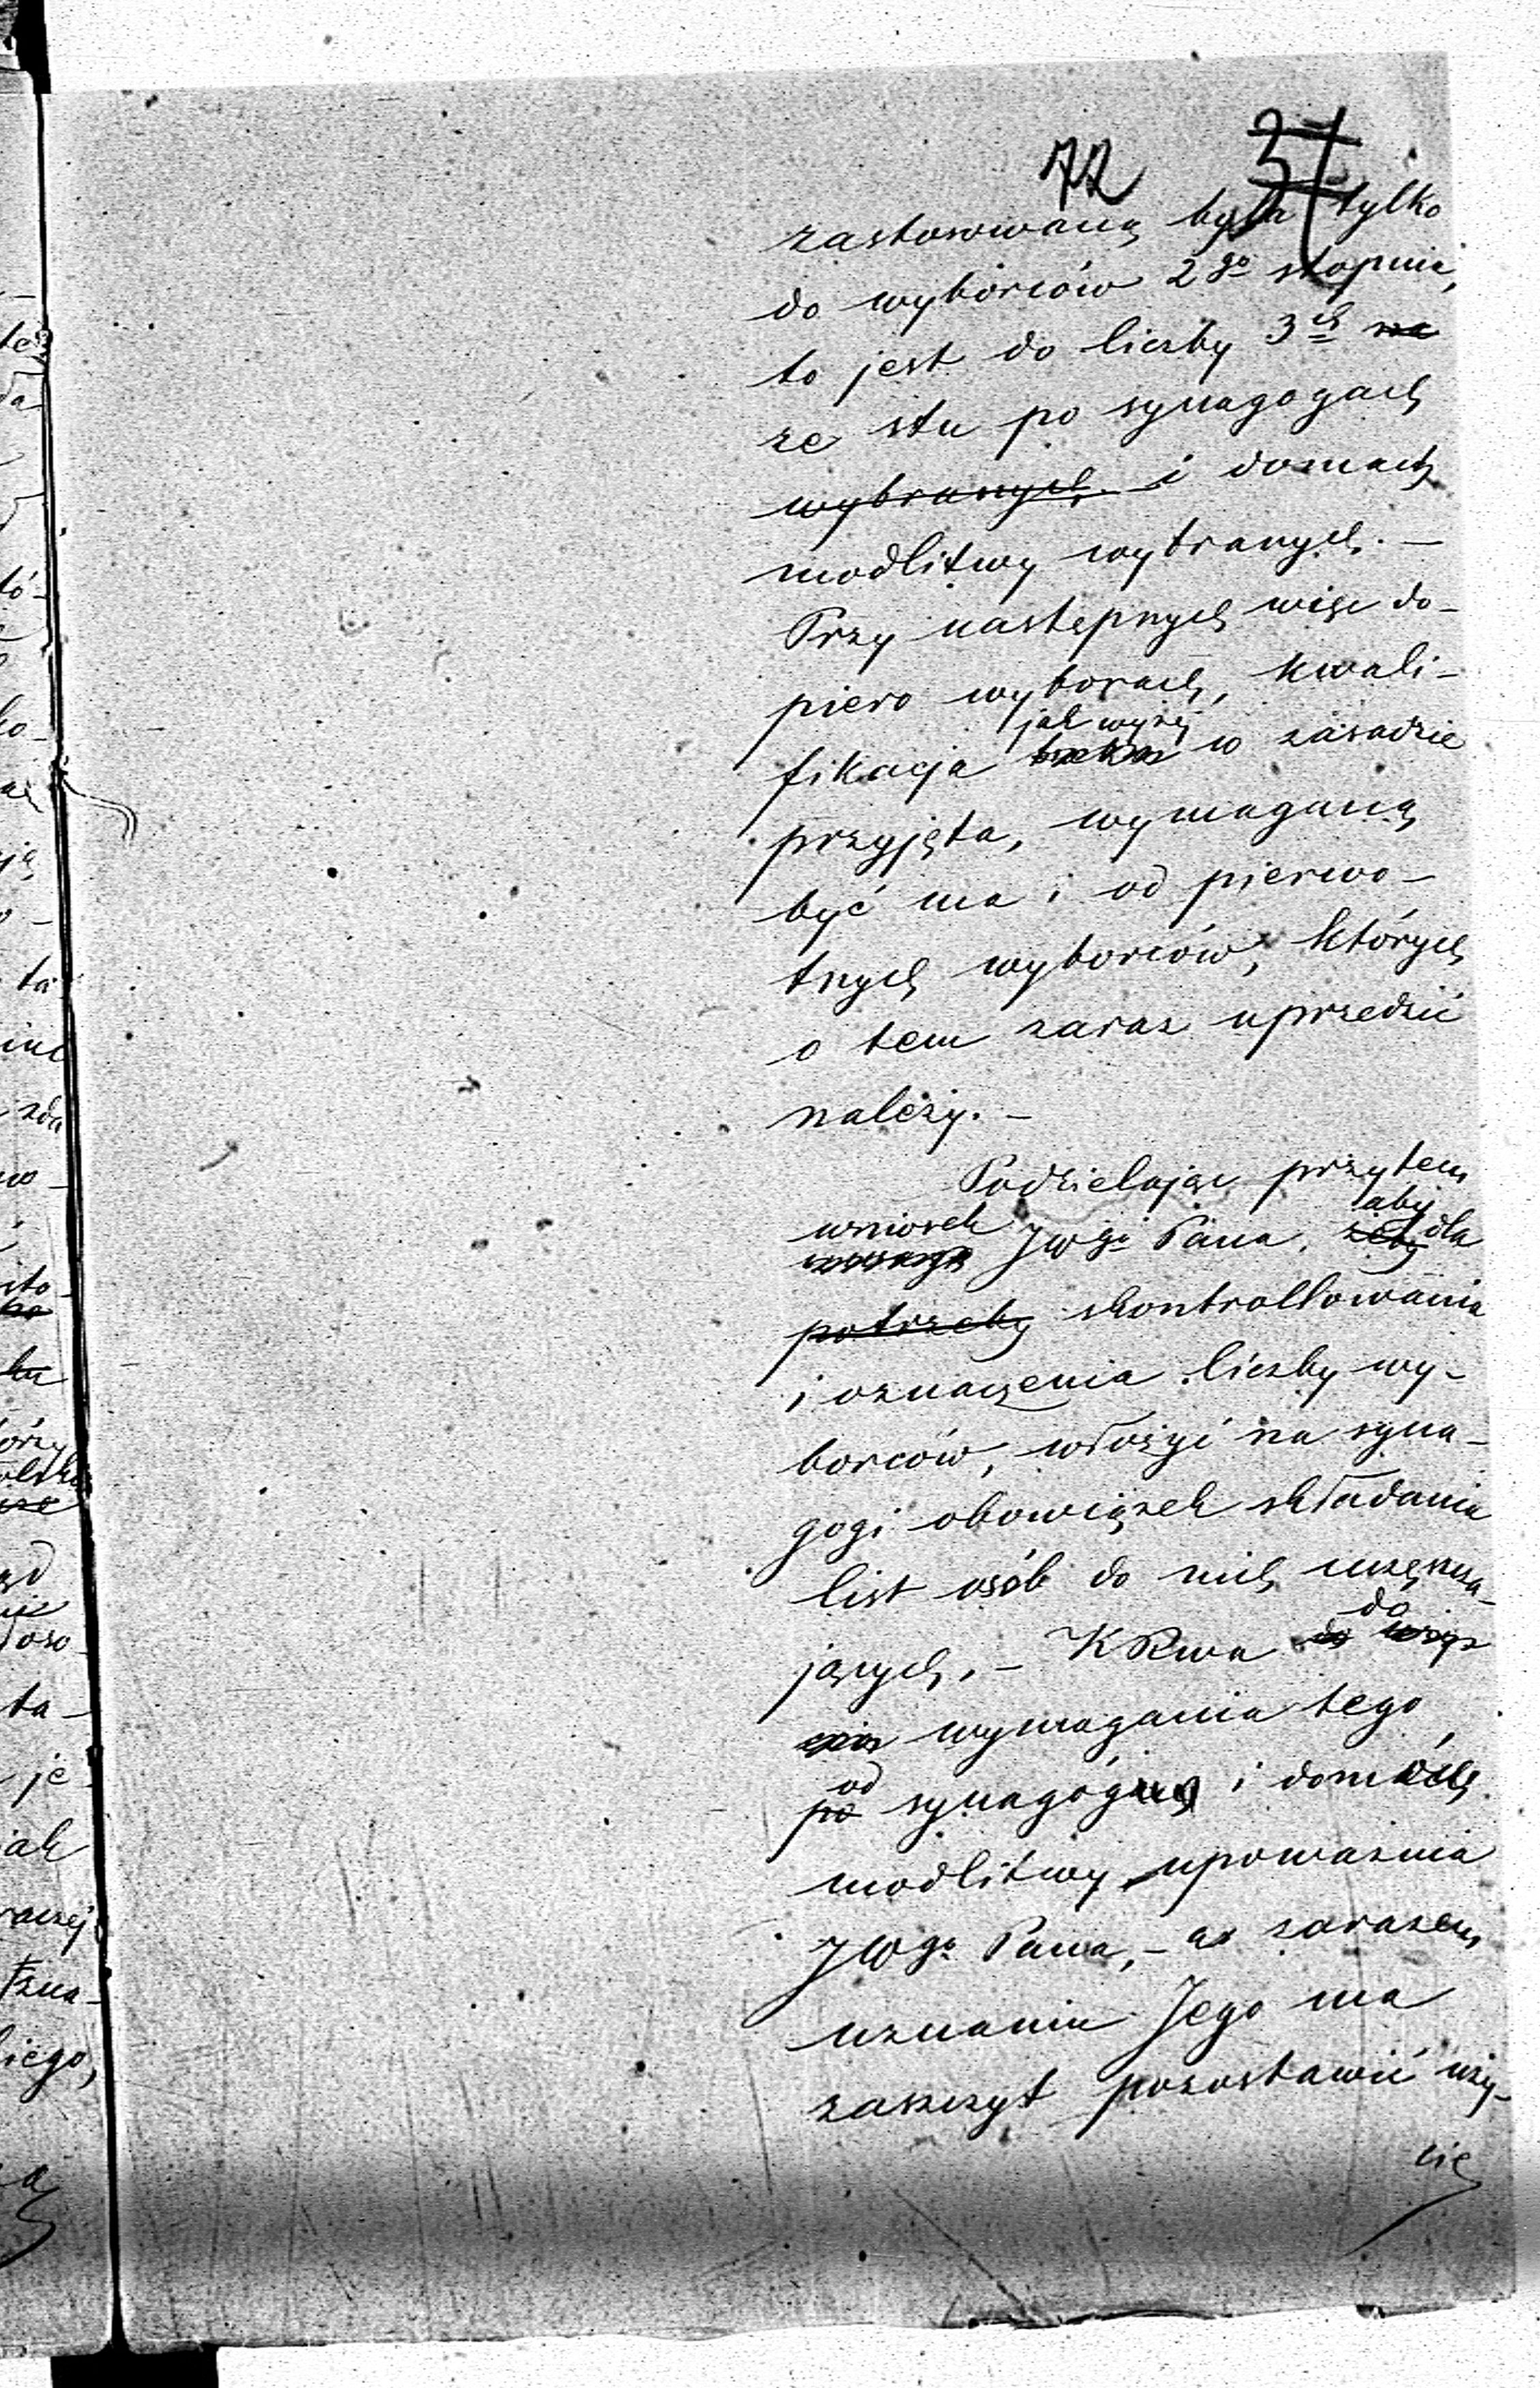 72 37
zastosowaną była tylko
do wyborców 2go stopnia,
to jest do liczby 3ch
ze stu po synagogach
wybranych i domach
modlitwy wybranych. —
Przy następnych więc do-
piero wyborach, kwali-
jak wyżej
fikacja w zasadzie
przyjęta, wymaganą
być ma i od pierwo-
tnych wyborców, których
o tem zaraz uprzedzić
należy. —
Podzielając przytem
wniosek aby
JWgo Pana, żeby dla
potrzeby skontrollowania
i oznaczenia liczby wy-
borców, włożyć na syna-
gogi obowiązek składania
list osób do nich uczęszcza-
do
jących, — KRwa
wymagania tego
od
po synagóg i domów
modlitwy upoważnia
JWgo Pana, — a zarazem
uznaniu Jego ma
zaszczyt pozostawić uży-
cie